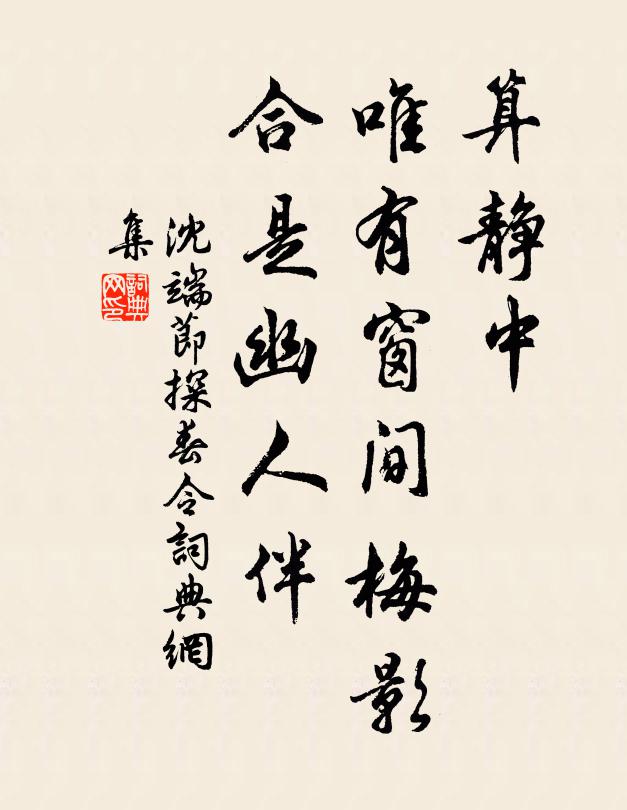 算静中
唯有窗间梅影
合是幽人伴
沈端節探春令詞典網
集
詞典
网印